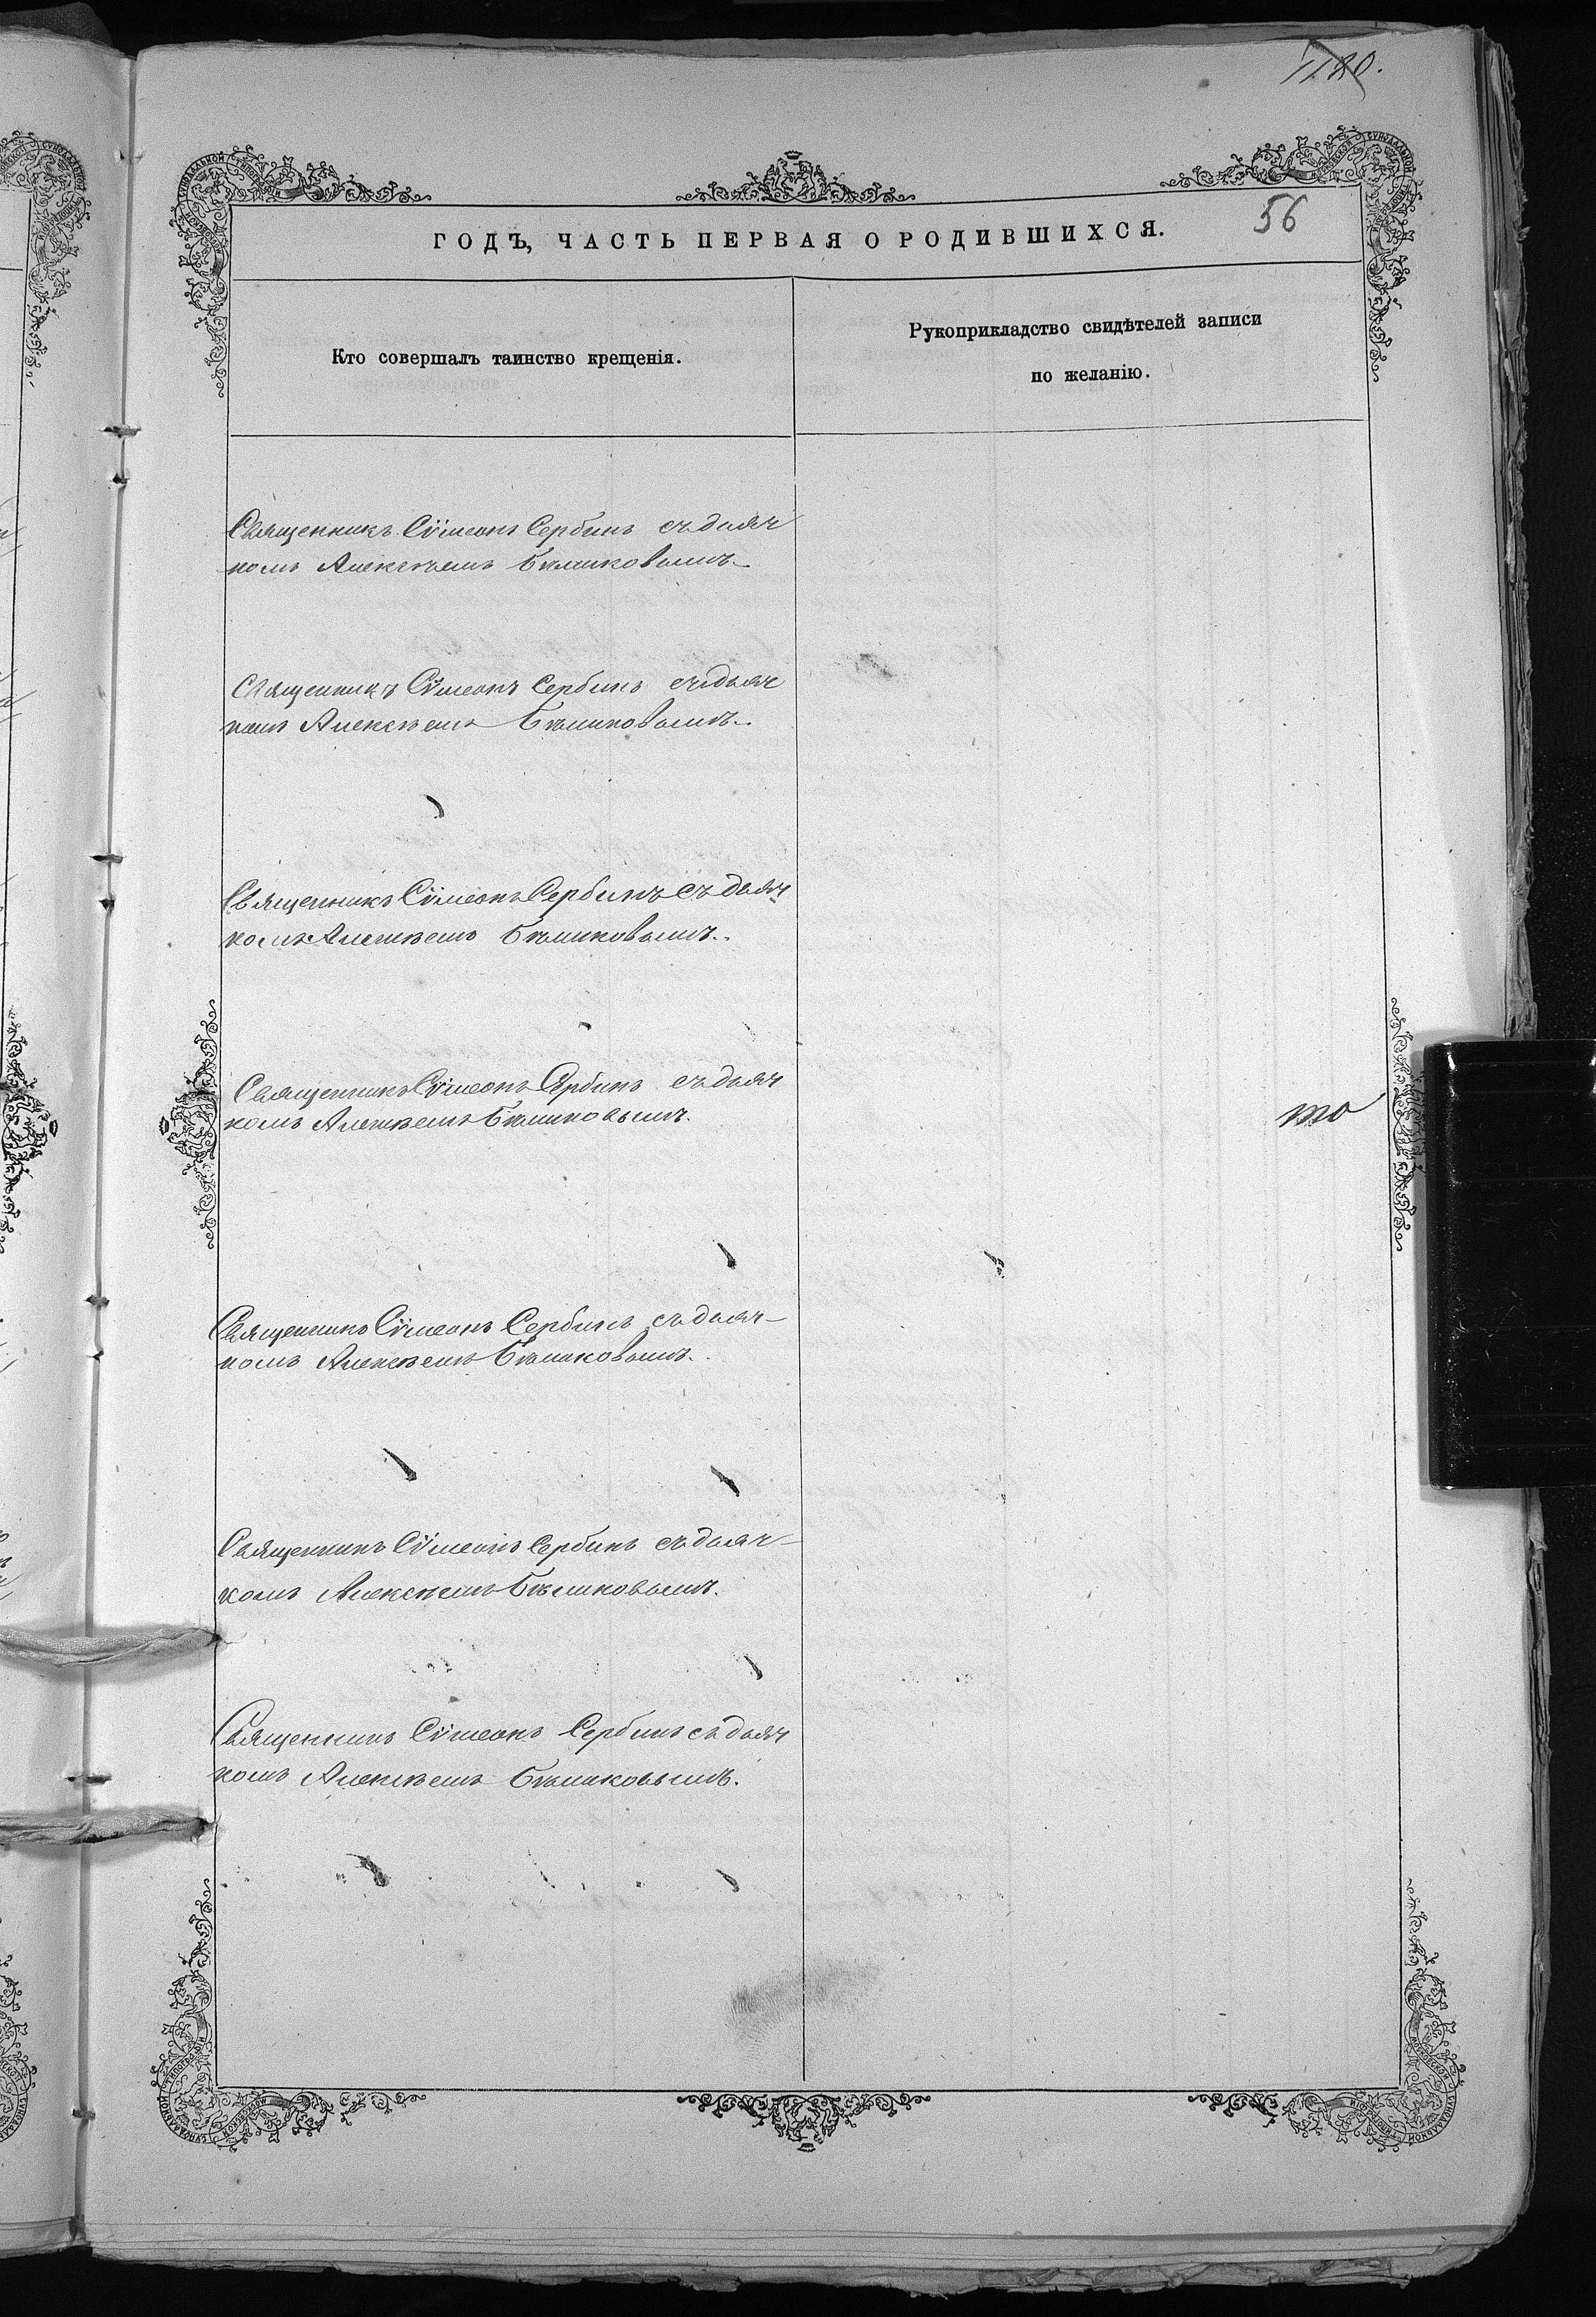 56
ГОДЪ, ЧАСТЬ ПЕРВАЯ О РОДИВШИХСЯ.
Кто совершалъ таинство крещенія.
Рукоприкладство свидѣтелей записи
по желанію.
Священникъ Сѵмеонъ Сербинъ съ дьяч
комъ Алексѣемъ Бѣликовымъ.
Священникъ Сѵмеонъ Сербинъ съ дьяч
комъ Алексѣемъ Бѣликовымъ.
Священникъ Сѵмеонъ Сербинъ съ дьяч
комъ Алексѣемъ Бѣликовымъ.
Священникъ Сѵмеонъ Сербинъ съ дьяч
комъ Алексѣемъ Бѣликовымъ.
то
Священникъ Сѵмеонъ Сербинъ съ дьяч-
комъ Алексѣемъ Бѣликовымъ.
Священникъ Сѵмеонъ Сербинъ съ дьяч-
комъ Алексѣемъ Бѣликовымъ.
Священникъ Сѵмеонъ Сербинъ съ дьяч
комъ Алексѣемъ Бѣликовымъ.